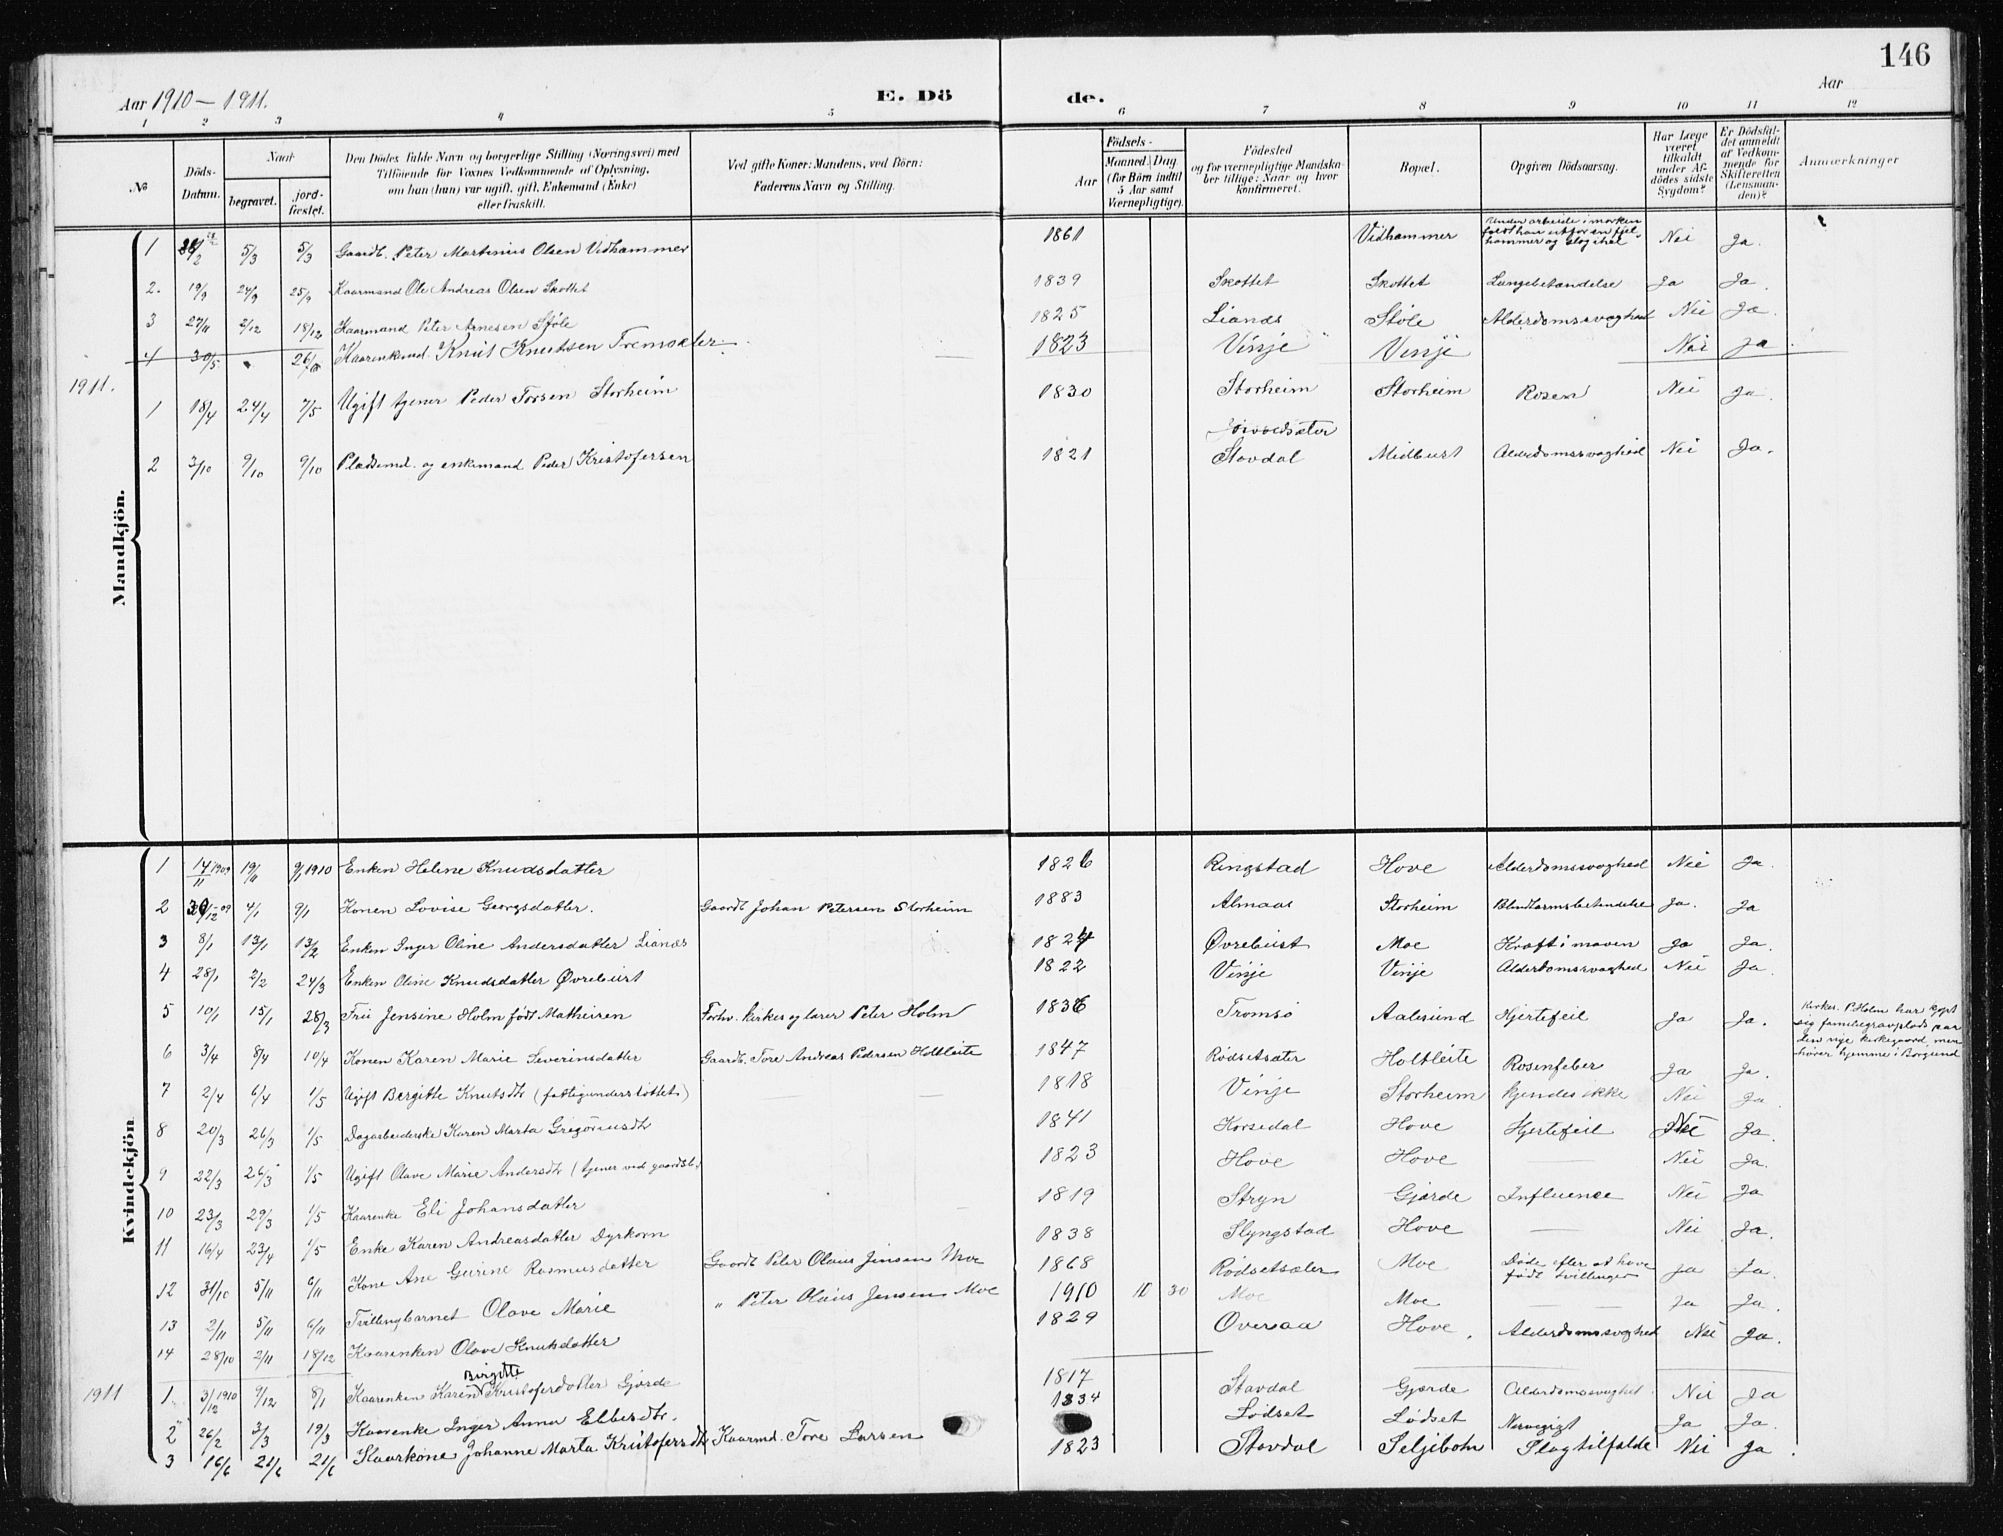 146
Aar 1910 — 1911.
E. Dö de.
Aar
1 2 3 4 5 6 7 8 9 10 11 12
No
Döds-Datum.
Naar
begravet.
jord-fæstet.
Den Dödes fulde Navn og borgerlige Stilling (Næringsvei) med
Tilföiende for Voxnes Vedkommende af Oplysning,
om han (hun) var ugift, gift, Enkemand (Enke)
eller fraskilt.
Ved gifte Koner: Mandens, ved Börn:
Faderens Navn og Stilling.
Födsels-
Aar
Maaned. Dag
(for Börn indtil
5 Aar samt
Værnepligtige).
Födested
og for værnepligtige Mandska-
ber tillige: Naar og hvor
konfirmeret.
Bopæl.
Opgiven Dödsaarsag.
Har Læge
været
tilkaldt
under Af-
dödes sidste
Sygdom?
Er Dödsfal-
det anmeldt
af Vedkom-
mende for
Skifteretten
(Lensman-
den)?
Anmærkninger
Mandkjön.
1 5/3 5/3 Gaardb. Peter Martinus Olsen Vidhammer 1861 Vidhammer Under arbeide i mørken
faldt han utfor en fjel-
hammer og slog ihel Nei Ja.
2. 19/9 24/9 25/9 Kaarmand Ole Andreas Olsen Skottet 1839 Skottet Skottet Lungebetændelse Ja Ja.
3 27/11 2/12 18/12 Kaarmand Peter Arnesen Støle 1825 Lianes Støle Alderdomssvaghed Nei Ja.
4 30/5 26/6 Kaarenkemd. Knut Knutsen Tremoseter 1823 Vinje Vinje Nei Ja.
1911.
1 18/4 24/4 7/5 Ugift tjener Peder Torsen Storheim 1830 Storheim Storheim Rosen Nei Ja.
2 3/10 9/10 9/10 Pladsemd. og enkemand Peder Kristofersen 1821 Stavdal Midbust Alderdomssvaghed Nei Ja.
Kvindekjön
1 14/11 1909 19/11 9/1 1910 Enken Helene Knudsdatter 1826 Ringstad Hove Alderdomssvaghed Nei Ja.
2 30/12-09 4/1 9/1 Konen Lovise Georgsdatter. Gaardb. Johan Petersen Storheim 1883 Almaas Storheim Blindtarmsbetændelse Ja. Ja
3 8/1 13/1 13/2 Enken Inger Oline Andersdatter Lianes 1824 Øvrebust Moe Kræft i maven Ja Ja.
4 28/1 2/2 24/3 Enken Oline Knudsdatter Øvrebust 1822 Vinje Vinje Alderdomssvaghed Nei Ja.
5 10/1 15/1 28/3 Fru Jensine Holm født Matheisen Forhv. kirkesglærer Peter Holm 1836 Tromsø Aalesund Hjertefeil Ja Ja. Kirkes. P. Holm har kjøpt
sig familiegravplads paa
den nye kirkegaard, men
hører hjemme i Borgund
6 3/4 8/4 10/4 Konen Karen Marie Severinsdatter Gaardb. Tore Andreas Pedersen Holtleite 1847 Rødsetsæter Holtleite Rosenfeber Ja Ja.
7 2/4 6/4 1/5 Ugift Bergitte Knutsdtr (fattigunderstøttet) 1818 Vinje Storheim Kjendes ikke Nei Ja
8 20/3 26/3 1/5 Dagarbeiderske Karen Marta Gregoriusdtr 1841 Korsedal Hove Hjertefeil Nei Ja.
9 22/3 26/3 1/5 Ugift Olave Marie Andersdtr (tjener ved gaardsb.) 1823 Hove Hove — Nei Ja.
10 23/3 29/3 1/5 Kaarenke Eli Johansdatter 1819 Stryn Gjærde Influence Nei Ja
11 16/4 23/4 1/5 Enke Karen Andreasdatter Dyrkorn 1838 Slyngstad Hove — Nei Ja.
12 31/10 5/11 6/11 Kone Ane Gurine Rasmusdatter Gaardb. Peter Olaus Jensen Moe 1868 Rødsetsæter Moe Døde efter at have
født tvillinger Ja Ja.
13 2/11 5/11 6/11 Tvillingbarnet Olave Marie " Peter Olaus Jensen Moe 1910 10 30 Moe Moe — Ja Ja.
14 28/10 2/11 18/12 Kaarenken Olave Knutsdatter 1829 Overaa Hove. Alderdomssvaghed Nei Ja.
1911
1. 3/12 1910 9/12 8/1 Kaarenken Karen Birgitte Kristofersdatter Gjærde 1817 Stavdal Gjærde Alderdomssvaghet. Nei Ja
2 26/2 3/3 19/3 Kaarenke Inger Anna Ellersdtr. 1834 Lødset Lødset Nervegigt Ja Ja.
3 16/6 21/6 21/6 Kaarkone Johanne Marta Kristofersdtr Kaarmd. Tore Larsen 1823 Stavdal Seljebotn Slagtilfælde Nei Ja.